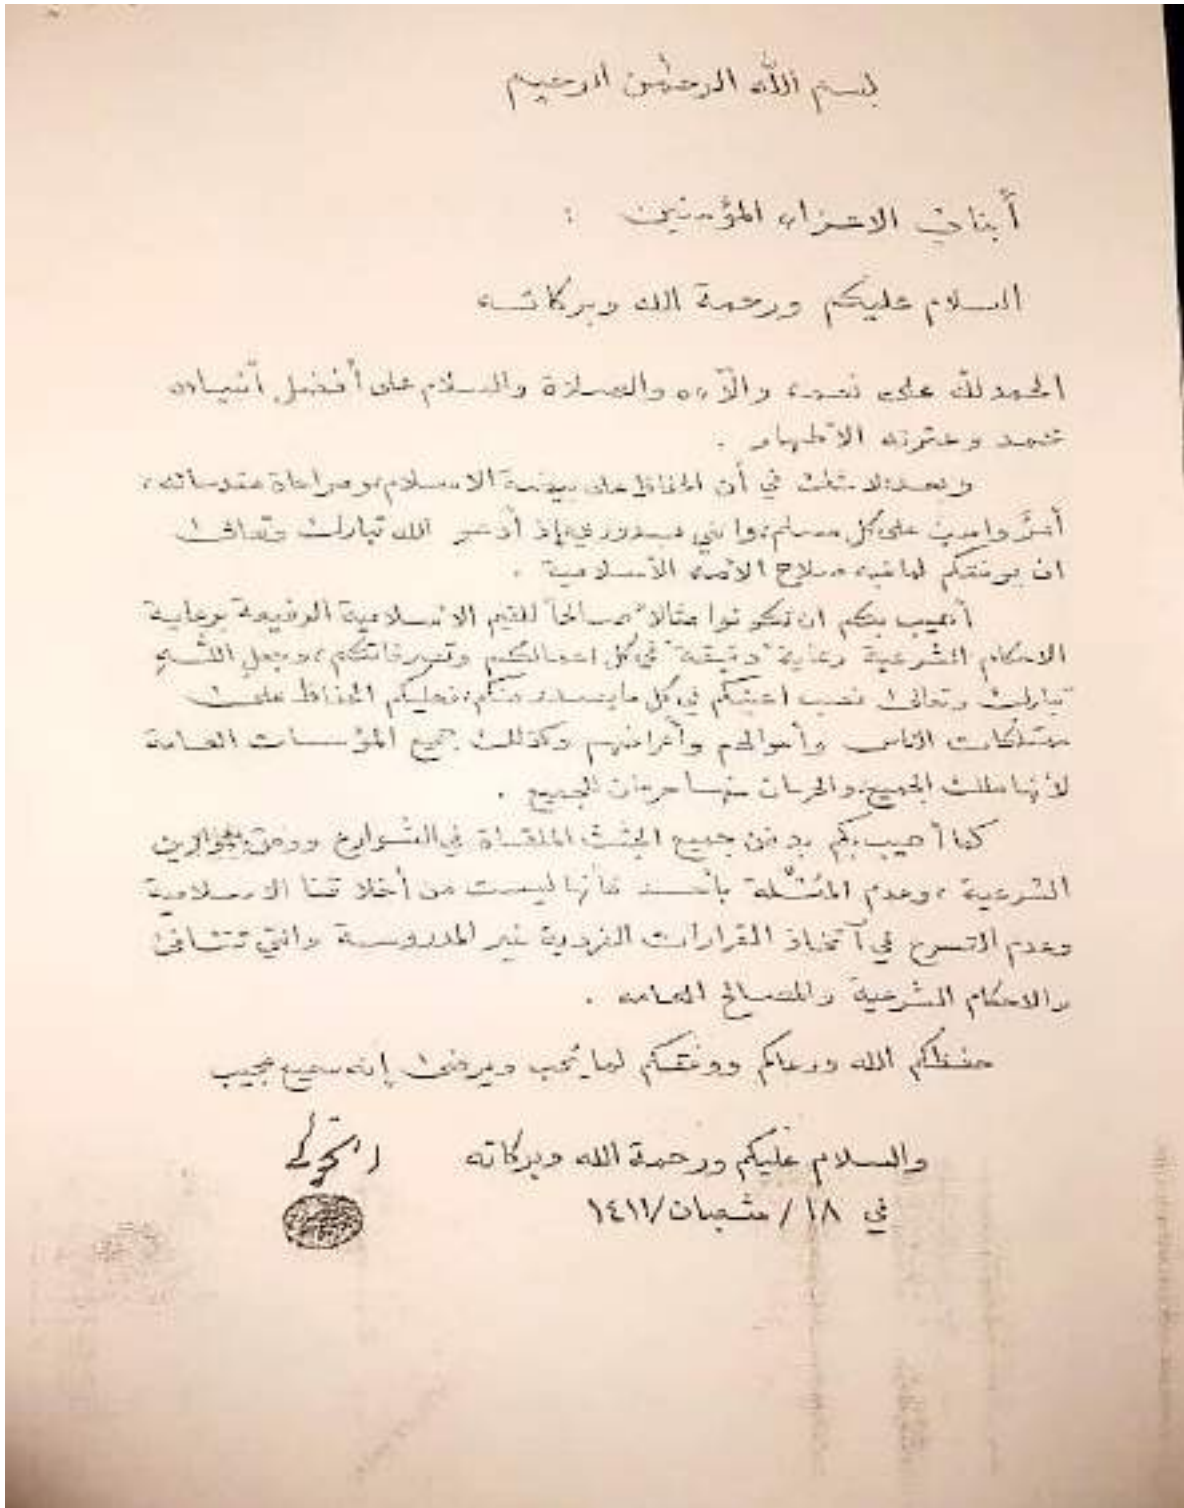 بسم الله الرحمن الرحيم
أبنائي الاعزاء المؤمنين :
السلام عليكم ورحمة الله وبركاته
الحمد لله على نعمه وآلائه والصلاة والسلام على أفضل أنبيائه
محمد وعترته الأطهار .
وبعد: لا شك في أن الحفاظ على بيضة الاسلام، ومراعاة مقدساته،
أمرٌ واجب على كل مسلم، وانني بدوري إذ أدعو الله تبارك وتعالى
ان يوفقكم لما فيه صلاح الأمة الأسلامية .
أهيب بكم ان تكونوا مثالاً صالحاً للقيم الاسلامية الرفيعة برعاية
الاحكام الشرعية رعاية دقيقة في كل اعمالكم وتصرفاتكم، وجعل الله
تبارك وتعالى نصب اعينكم في كل ما يصدر منكم، فعليكم الحفاظ على
ممتلكات الناس وأموالهم وأعراضهم وكذلك جميع المؤسسات العامة
لأنها ملك الجميع، والحرمان منها حرمان الجميع .
كما أهيب بكم بدفن جميع الجثث الملقاة في الشوارع ووفق الموازين
الشرعية ، وعدم المُثلة بأحد فأنها ليست من أخلاقنا الاسلامية
وعدم التسرع في أتخاذ القرارات الفردية غير المدروسة والتي تتنافى
والاحكام الشرعية والمصالح العامة .
حفظكم الله ورعاكم ووفقكم لما يُحب ويرضى إنه سميع مجيب
والسلام عليكم ورحمة الله وبركاته الخوئي
في ١٨ / شعبان / ١٤١١